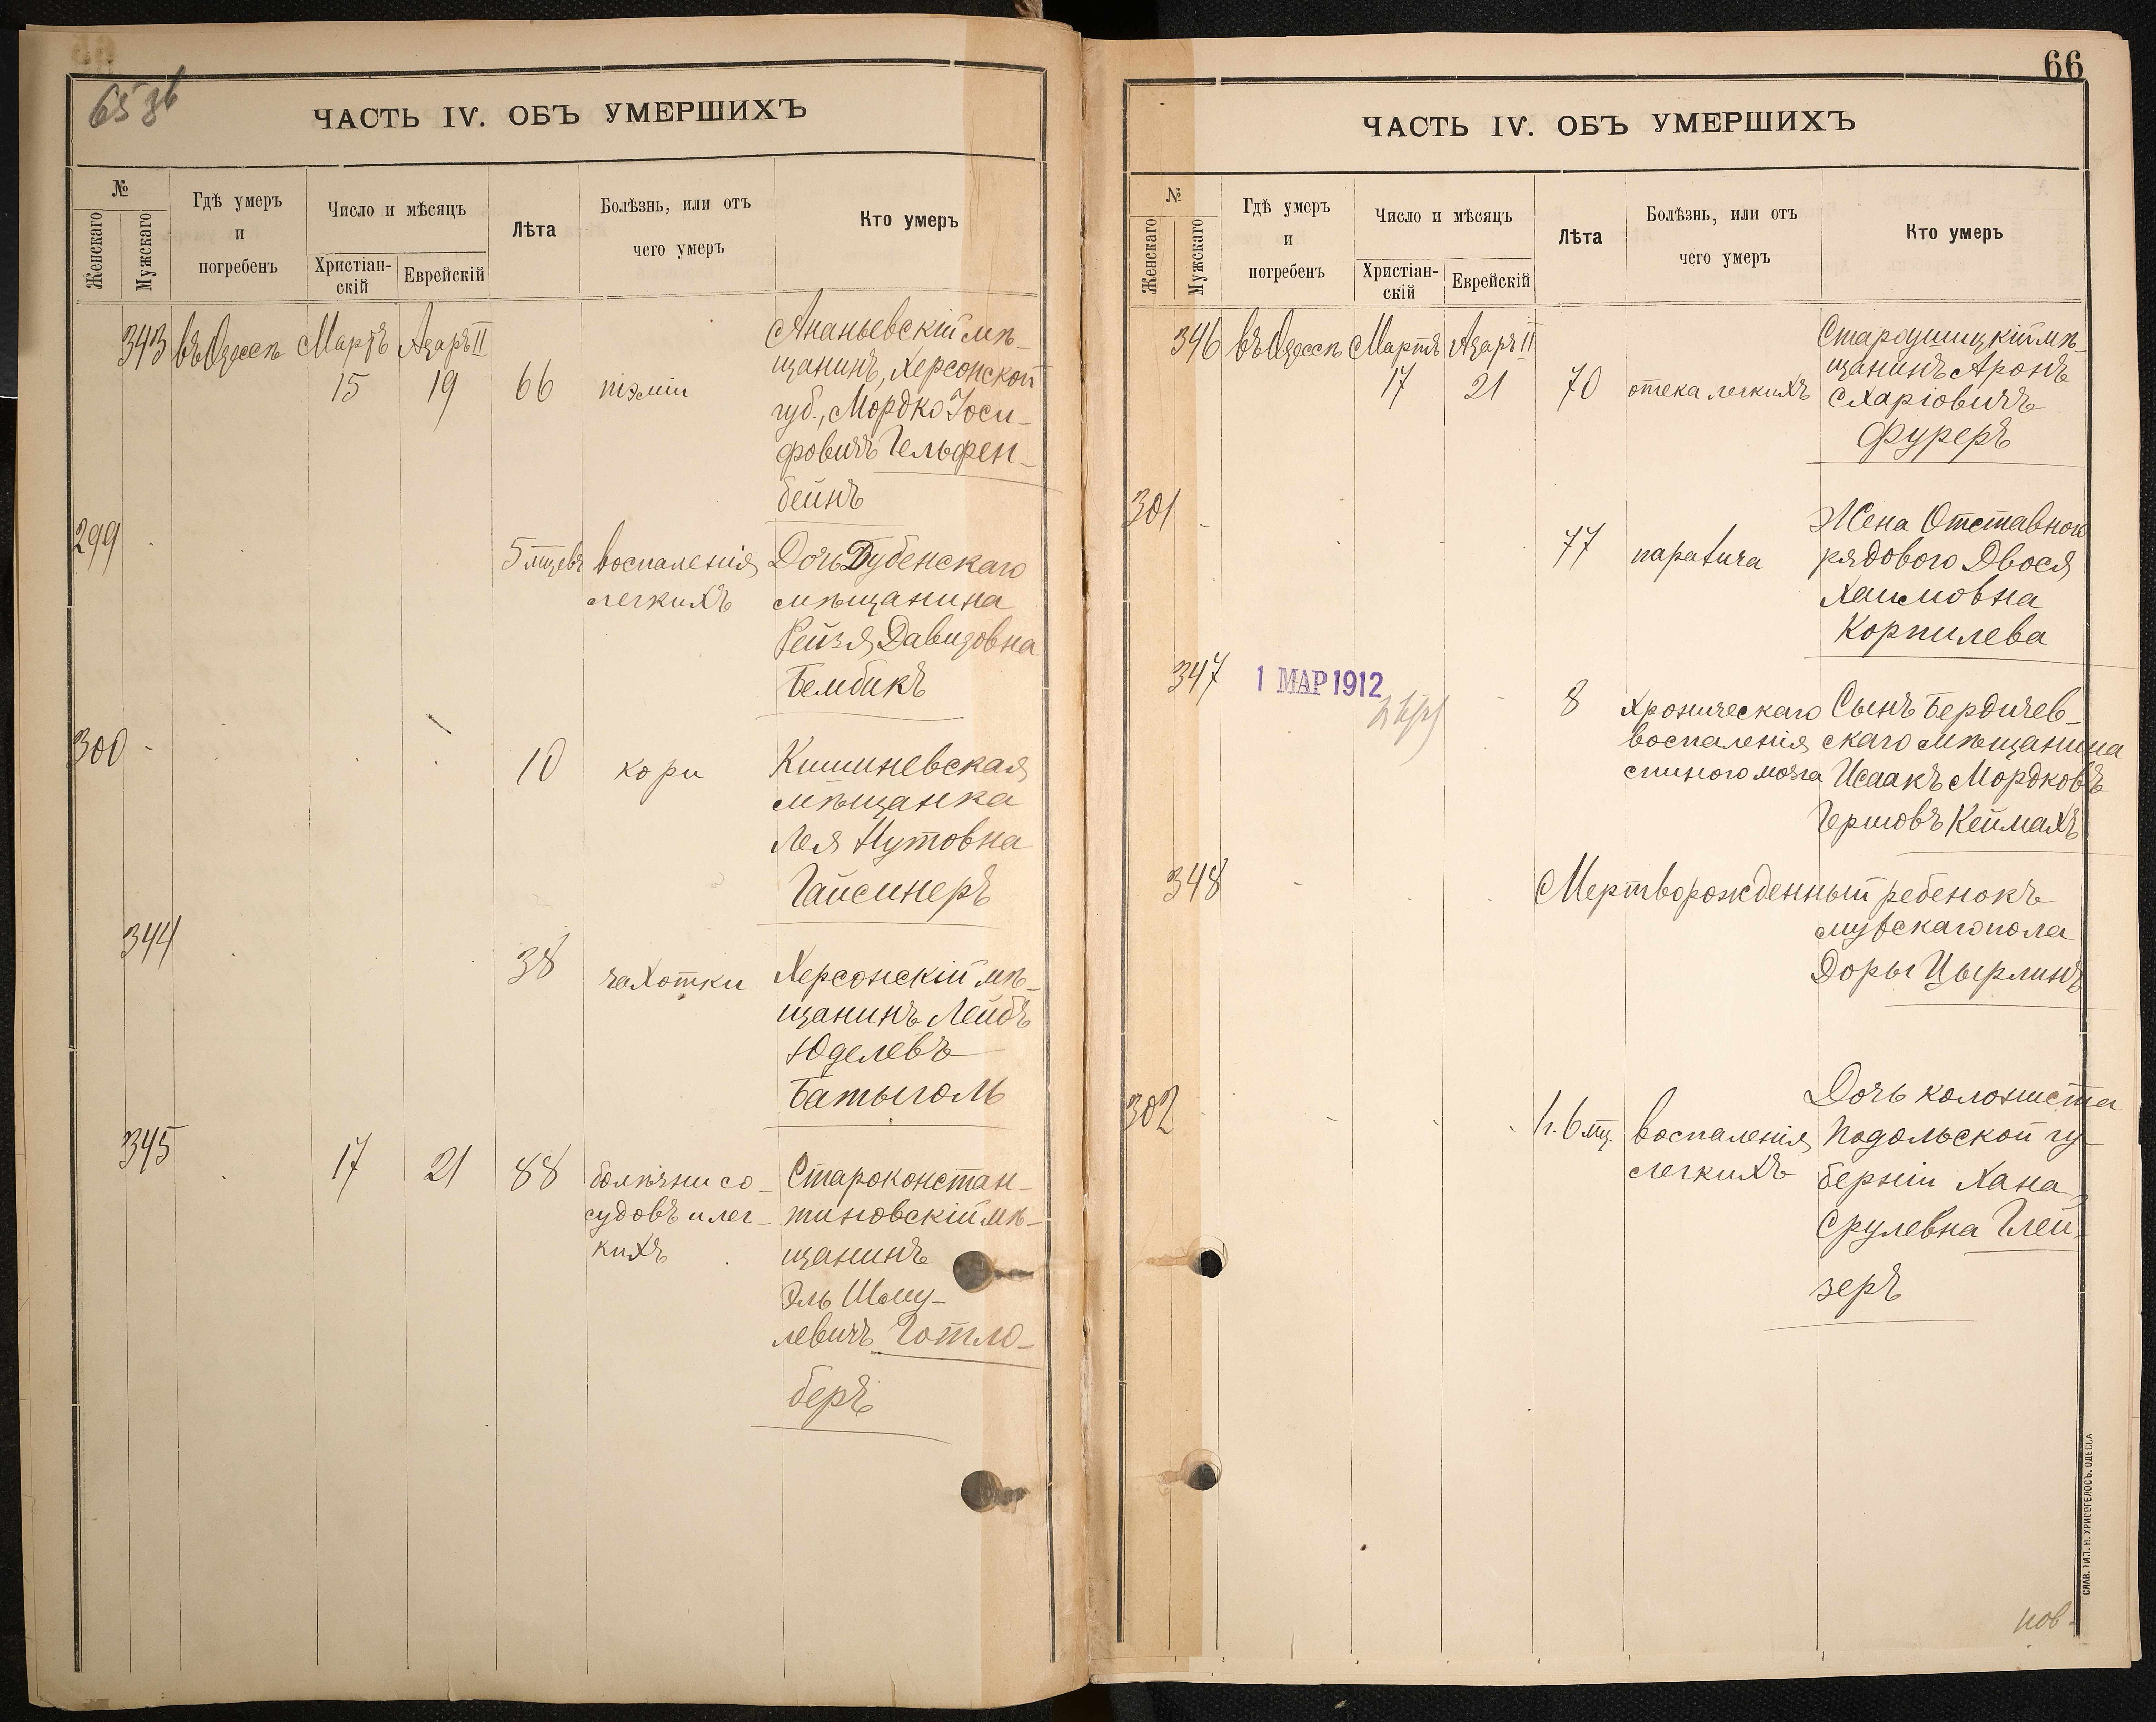 65 зв
ЧАСТЬ IV. ОБЪ УМЕРШИХЪ
№
Женскаго
Мужскаго
Гдѣ умеръ
и
погребенъ
Число и мѣсяцъ
Христіан-
скій
Еврейскій
Лѣта
Болѣзнь, или отъ
чего умеръ
Кто умеръ
343 въ Одессѣ Мартъ Адаръ II
15 19 66 піэміи
Ананьевскій мѣ-
щанинъ, Херсонской
губ., Мордко Іоси-
фовичъ Гельфен-
бейнъ
299
5 мцевъ воспаленія
легкихъ
Дочь Дубенскаго
мѣщанина
Рейзя Давидовна
Бембикъ
300
10 кори
Кишиневская
мѣщанка
Лея Нутовна
Гайсинеръ
344
38 чахотки
Херсонскій мѣ-
щанинъ Лейбъ
Юделевъ
Батыголь
345 17 21 88
болѣзни со-
судовъ и лег-
кихъ
Староконстан-
тиновскій мѣ-
щанинъ
Эль Шму-
левичъ Готло-
беръ
66
ЧАСТЬ IV. ОБЪ УМЕРШИХЪ
№
Женскаго
Мужскаго
Гдѣ умеръ
и
погребенъ
Число и мѣсяцъ
Христіан-
скій
Еврейскій
Лѣта
Болѣзнь, или отъ
чего умеръ
Кто умеръ
346 въ Одессѣ Мартъ Адаръ II
17 21 70 отека легкихъ
Староушицкій мѣ-
щанинъ Аронъ
Схаріовичъ
Фуреръ
301
77 паралича
Жена Отставного
рядового Двося
Хаимовна
Корпилева
347
1 МАР 1912
8
Хроническаго
воспаленія
спиного мозга
Сынъ Бердичев-
скаго мѣщанина
Исаакъ Мордковъ
Гершовъ Кеймахъ
348
Мертворожденный ребенокъ
мужскаго пола
Доры Цырлинъ
302
1 г. 6 мц. воспаленія
легкихъ
Дочь колониста
Подольской гу-
берніи Хана
Срулевна Глей-
зеръ
СЛАВ. ТИП. Н. ХРИСОГЕЛОСЪ. ОДЕССА